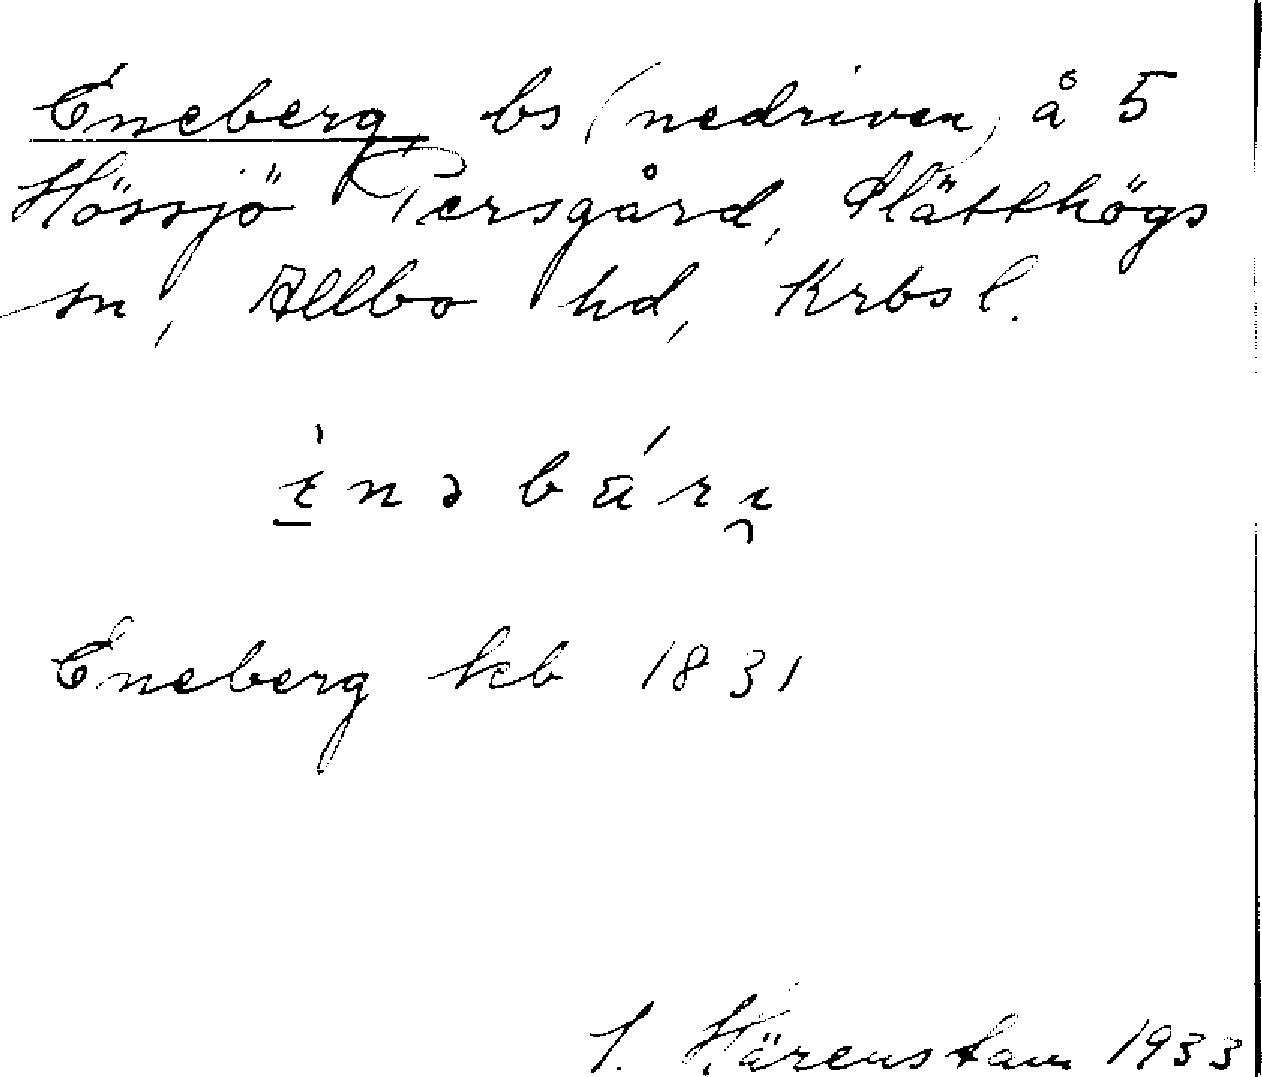 Eneberg bs (nedriven) å 5
Hössjö Persgård, Slätthögs
sn, Allbo hd, Krbs l.
Eneberg kb 1831
Härenstam 1933